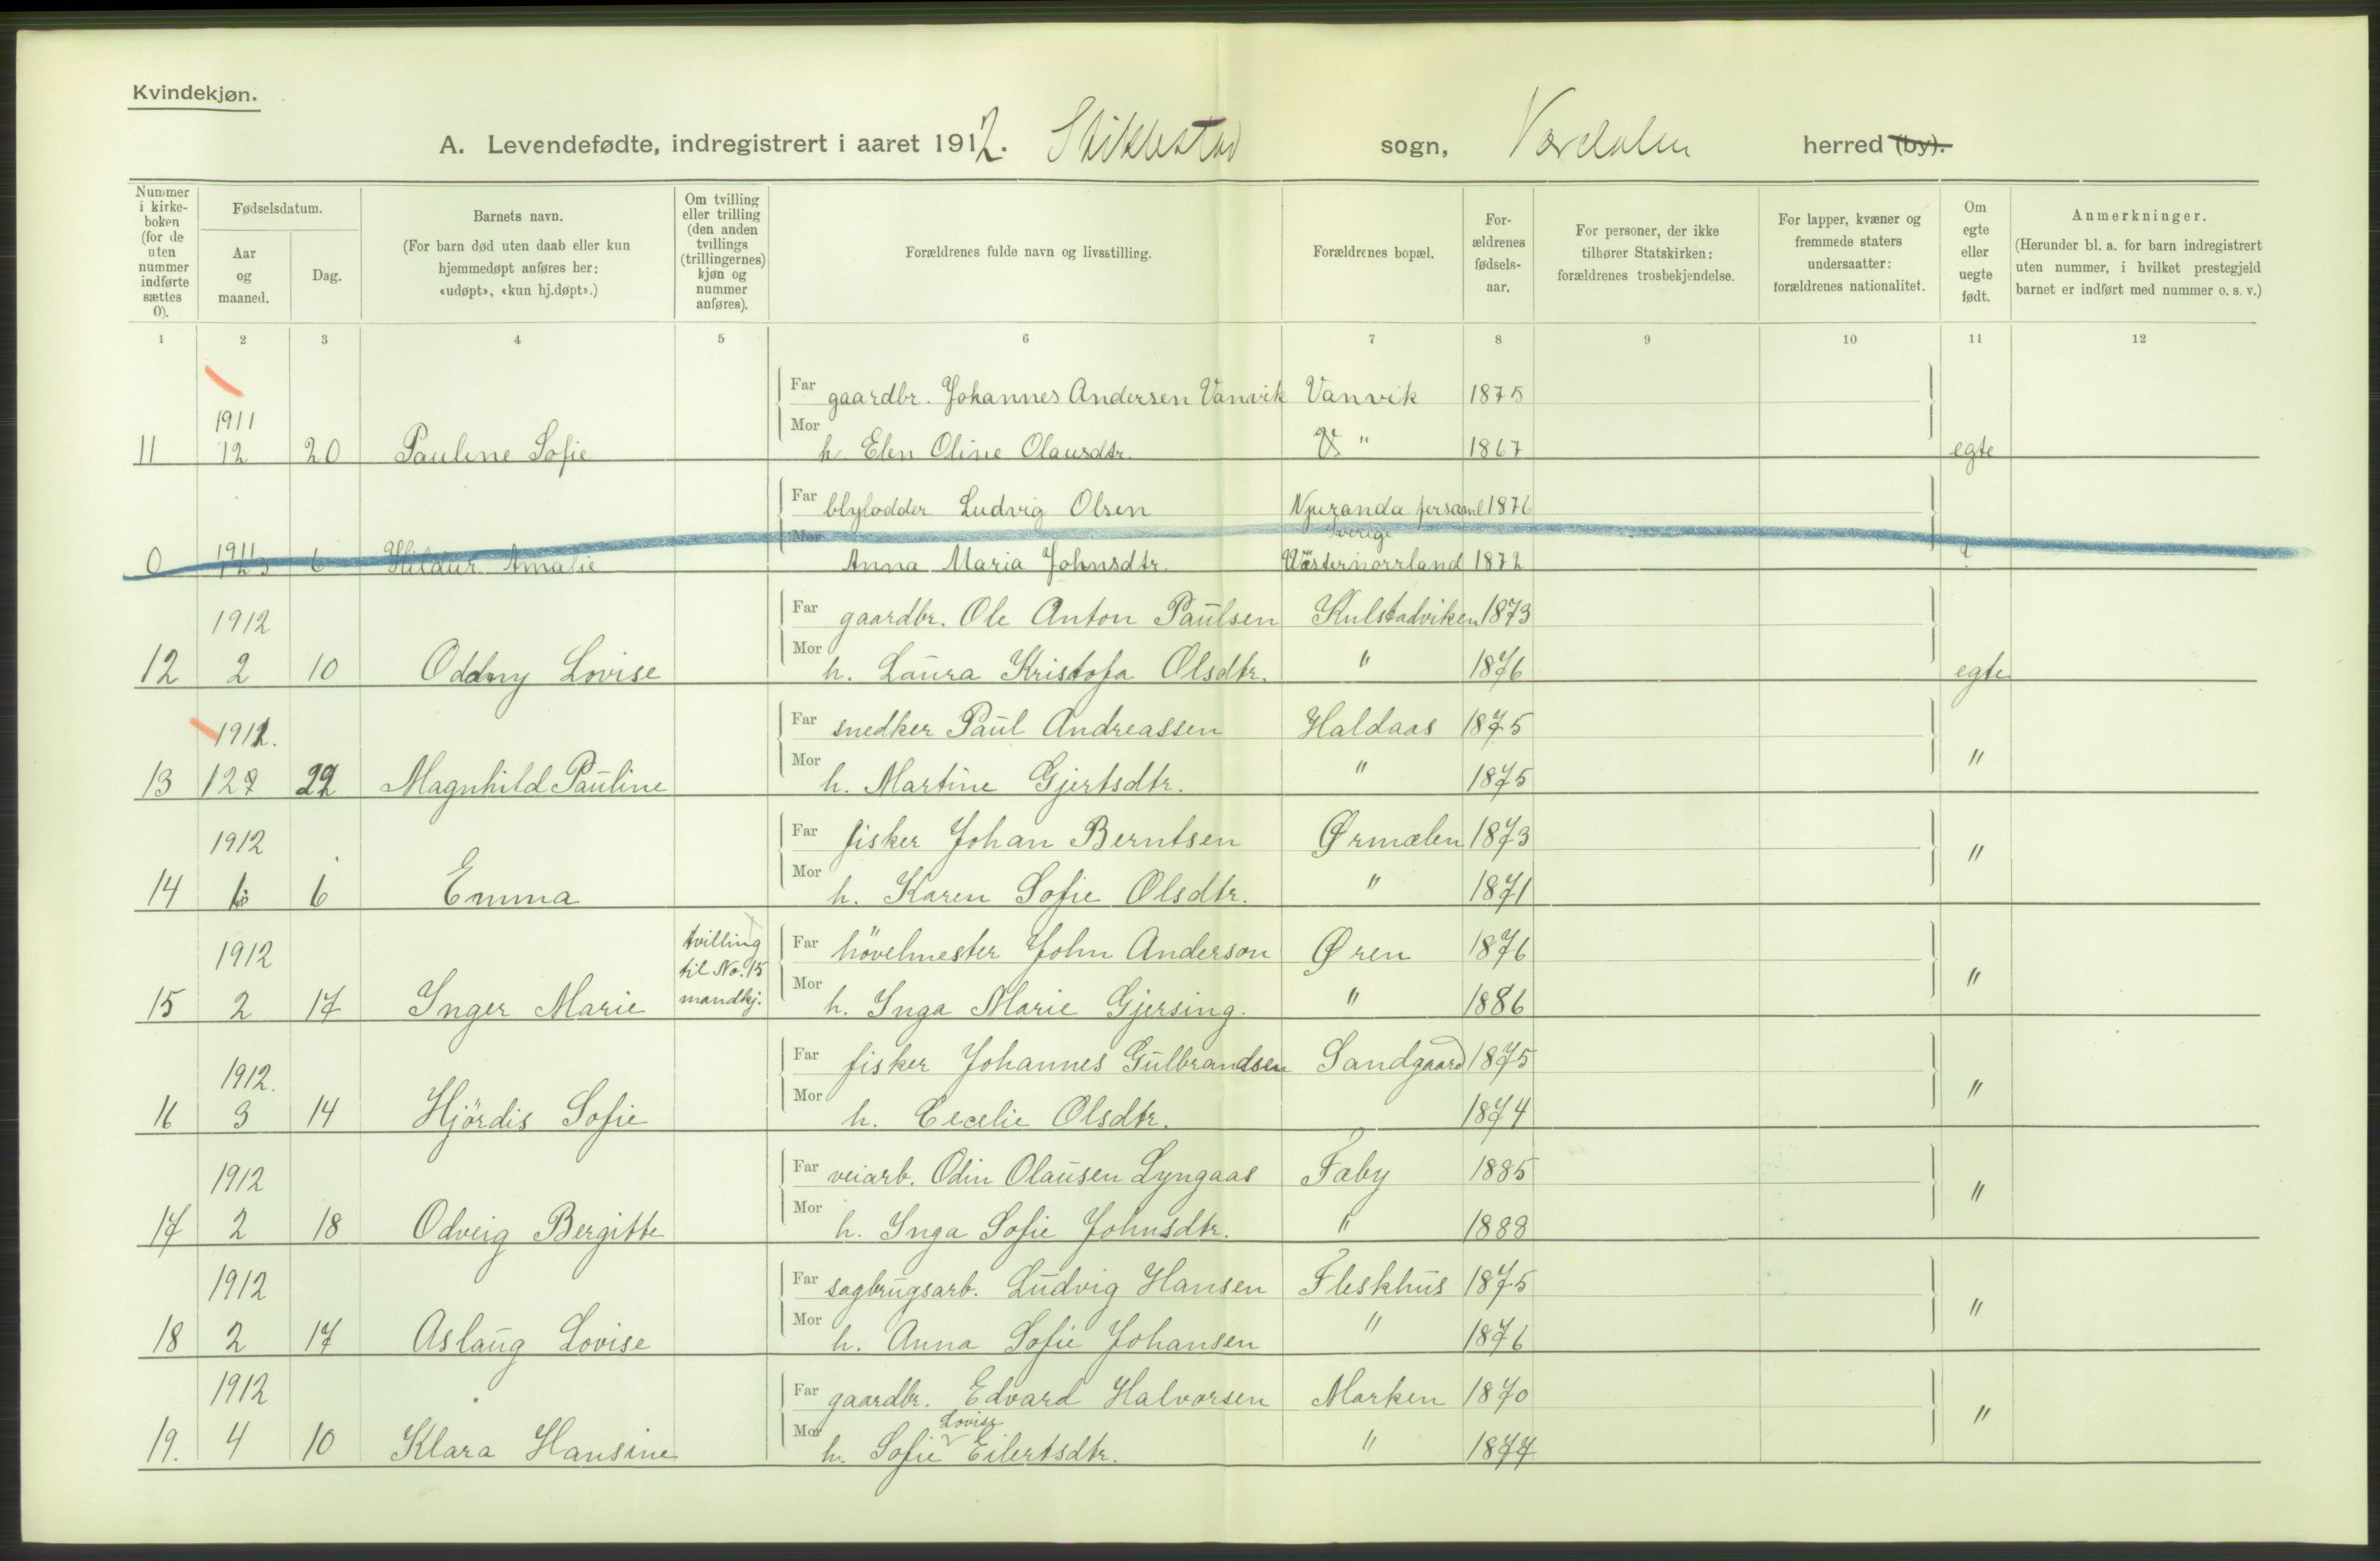 Kvindekjøn.
A. Levendefødte, indregistrert i aaret 1912. Stiklestad sogn, Værdalen herred (by).
Nummer i kirkeboken (for de uten nummer indførte sættes 0).
Fødselsdatum.
Aar og maaned.
Dag.
Barnets navn.
(For barn død uten daab eller kun hjemmedøpt anføres her: «udøpt», «kun hj.døpt».)
Om tvilling eller trilling (den anden tvillings (trillingernes) kjøn og nummer anføres).
Forældrenes fulde navn og livsstilling.
Forældrenes bopæl.
Forældrenes fødselsaar.
For personer, der ikke tilhører Statskirken: forældrenes trosbekjendelse.
For lapper, kvæner og fremmede staters undersaatter: forældrenes nationalitet.
Om egte eller uegte født.
Anmerkninger.
(Herunder bl. a. for barn indregistrert uten nummer, i hvilket prestegjeld barnet er indført med nummer o. s. v.)
1 2 3 4 5 6 7 8 9 10 11 12
Far gaardbr. Johannes Andersen Vanvik Vanvik 1875
1911
Mor
11 12 20 Pauline Sofie h. Elen Oline Olausdtr. " 1867 egte
Far blylodder Ludvig Olsen Njuranda forsaml 1876
1911 Mor Sverige
0 12 6 Hildur Amalie Anna Maria Johnsdtr. Västernorrland 1872
1912 Far gaardbr. Ole Anton Paulsen Kulstadviken 1873
12 2 10 Oddny Lovise Mor h. Laura Kristofa Olsdtr. " 1876 egte
1911. Far snedker Paul Andreassen Haldaas 1875
13 12 22 Magnhild Pauline Mor h. Martine Gjertsdtr. " 1875 "
1912 Far fisker Johan Berntsen Ørmælen 1873
14 6 Emma Mor h. Karen Sofie Olsdtr. " 1871 "
1912 tvilling til No. 15 mandkj. Far hövelmester John Anderson Øren 1876
15 2 17 Inger Marie Mor h. Inga Marie Gjersing. " 1886 "
1912. Far fisker Johannes Gulbrandsen Sandgaard 1875
16 3 14 Hjördis Sofie Mor h. Cecelie Olsdtr. 1874 "
1912 Far veiarb. Odin Olausen Lyngaas Faby 1885
17 2 18 Odveig Bergitte Mor h. Inga Sofie Johnsdtr. " 1888 "
1912 Far sagbrugsarb. Ludvig Hansen Fleskhus 1875
18 2 17 Aslaug Lovise Mor h. Anna Sofie Johansen " 1876 "
1912 Far gaardbr. Edvard Halvorsen Marken 1870
Lovise
19. 4 10 Klara Hansine Mor h. Sofie Eilertsdtr. " 1877 "